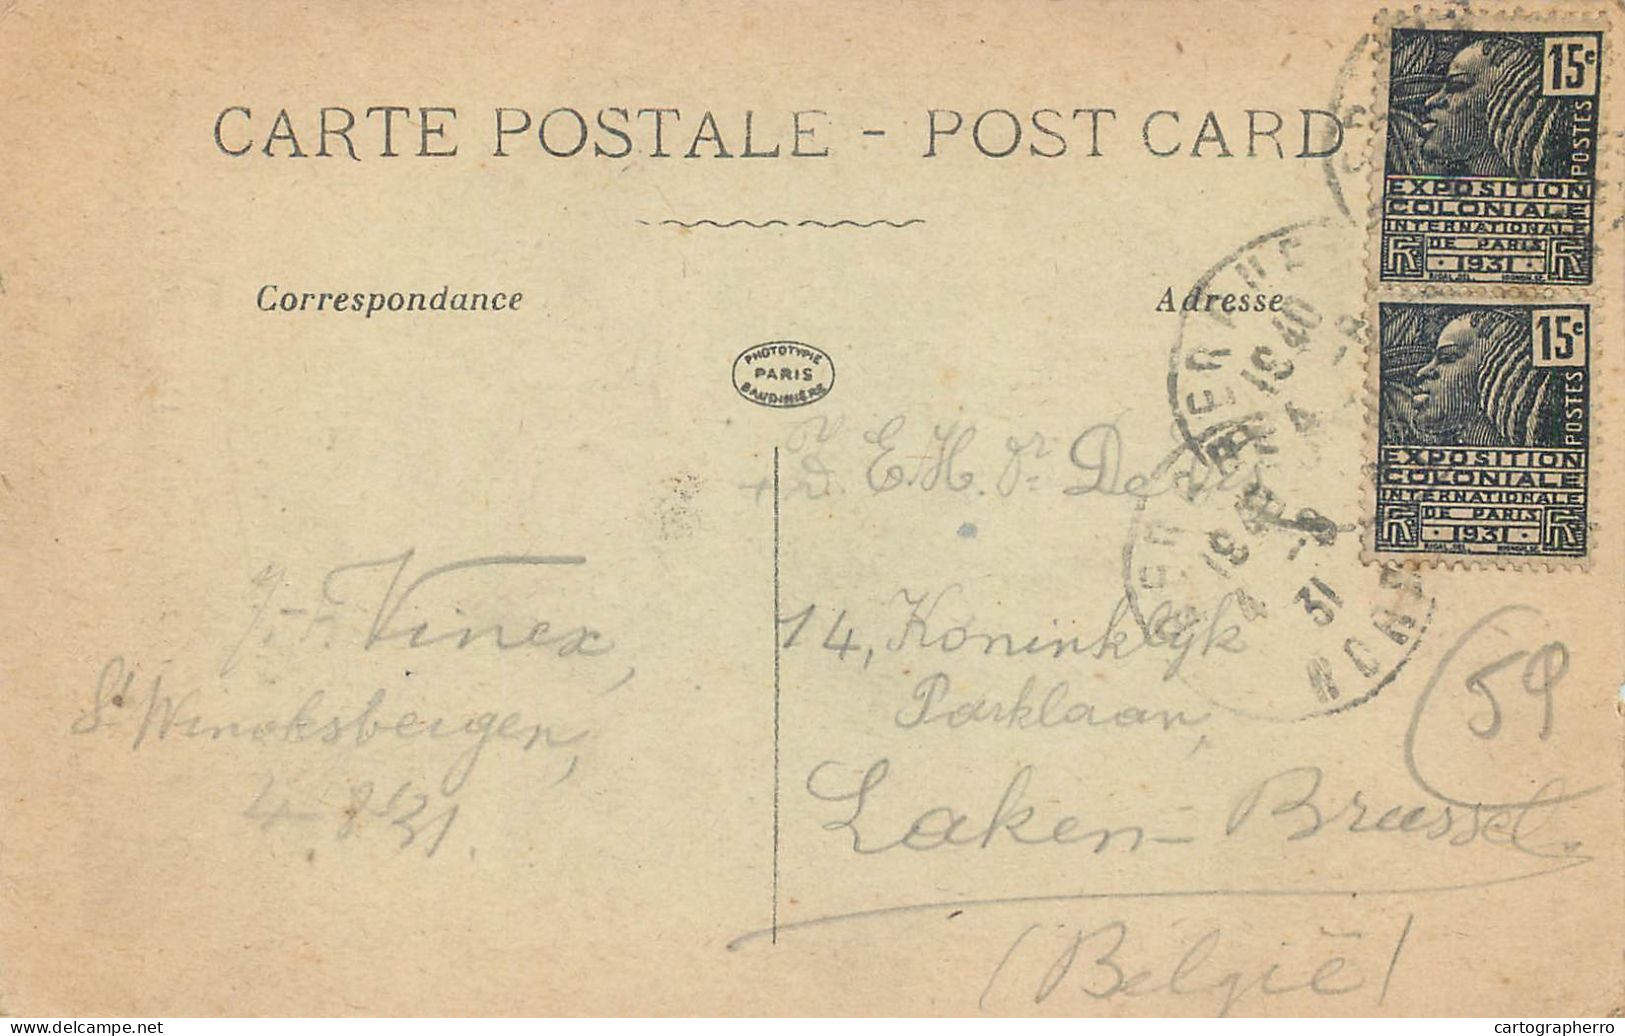 CARTE POSTALE - POST CARD
Correspondance
Adresse
PHOTOTYPIE
PARIS
BAUDINIÈRE
15c
POSTES
EXPOSITION
COLONIALE
INTERNATIONALE
DE PARIS
RF · 1931 · RF
15c
POSTES
EXPOSITION
COLONIALE
INTERNATIONALE
DE PARIS
RF · 1931 · RF
18 40
4 -8
31
NORD
E. H. Dr De
14, Koninklyk
Parklaan,
Laken - Brussel.
(België)
Vinex,
St Winoksbergen,
4-8-31.
59
cartographerro